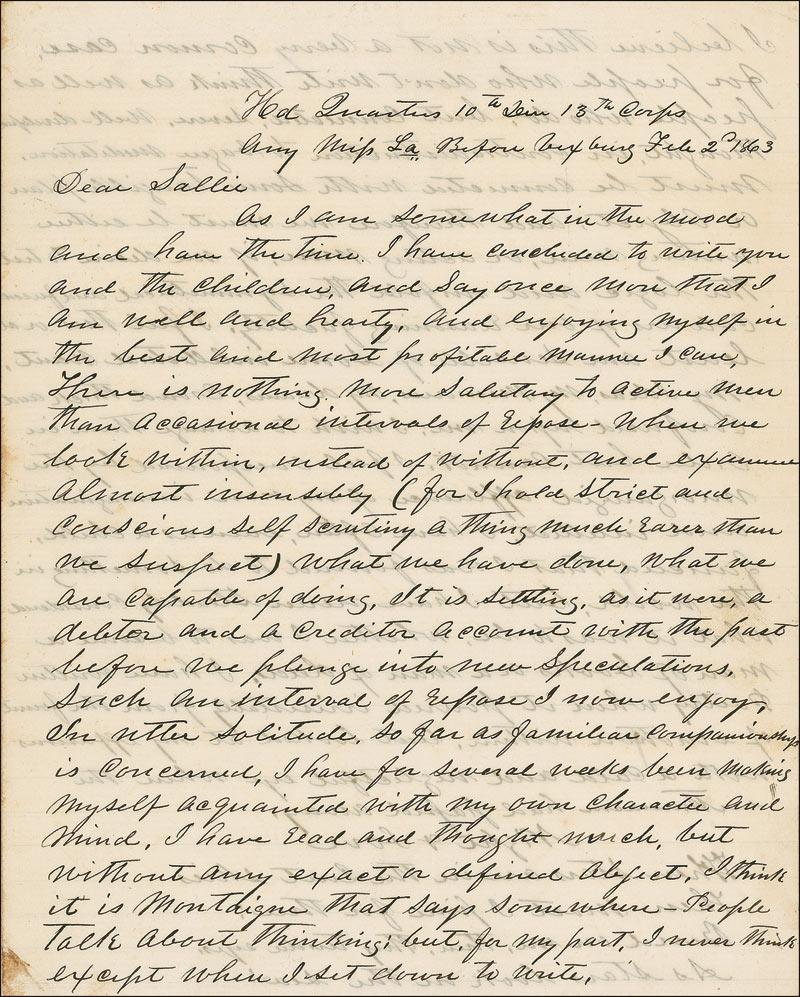 Hd Quarters 10th Div 13th Corps
Army Miss La. Before Vixburg Feb 2d 1863
Dear Sallie
As I am somewhat in the mood
and have the time. I have concluded to write you
and the children, and Say once more that I
am well and hearty, and enjoying myself in
the best and most profitable manner I can,
There is nothing. more salutary to active men
than accasional intervals of repose - when we
look within, instead of without, and examine
almost insensibly (for I hold strict and
conscious self scrutiny a thing much rarer than
we suspect) what we have done, what we
are capable of doing, It is settling, as it were, a
debtor and a creditor account with the past
before we plunge into new speculations.
Such an interval of repose I now enjoy,
In utter solitude, so far as familiar companionship
is concerned, I have for several weeks been making
myself acquainted with my own character and
mind, I have read and thought much, but
without any exact or defined object, I think
it is Montaigne that says somewhere - People
talk about thinking; but, for my part, I never think
except when I set down to write,